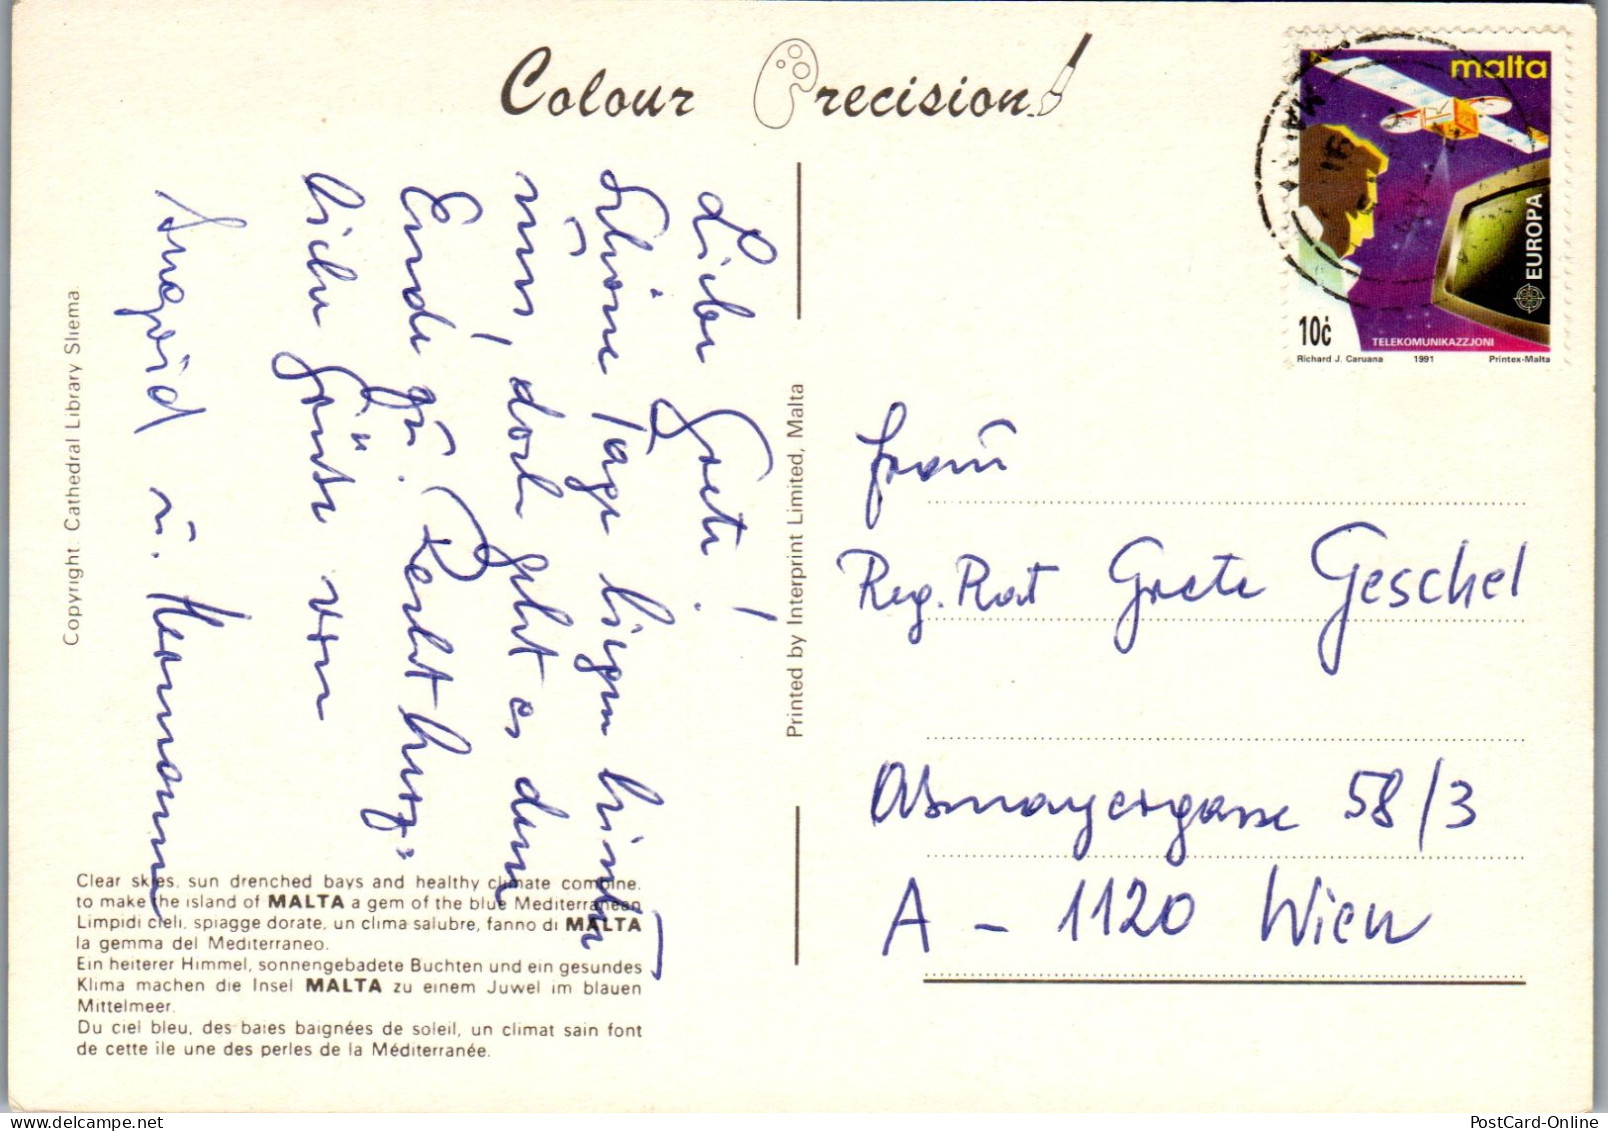 Colour Precision
malta
EUROPA
10ċ
TELEKOMUNIKAZZJONI
Richard J. Caruana 1991 Printex-Malta
MALTA
91
Liebe Greti!
Schöne Tage liegen hinter
uns, doch geht es dem
Ende zu. Recht herz=
liche Grüße von
Ingrid u. Hermann
Copyright. Cathedral Library Sliema.
Printed by Interprint Limited, Malta
Frau
Reg. Rat Grete Geschel
Assmayergasse 58/3
A - 1120 Wien
Clear skies, sun drenched bays and healthy climate combine.
to make the island of MALTA a gem of the blue Mediterranean
Limpidi cieli, spiagge dorate, un clima salubre, fanno di MALTA
la gemma del Mediterraneo.
Ein heiterer Himmel, sonnengebadete Buchten und ein gesundes
Klima machen die Insel MALTA zu einem Juwel im blauen
Mittelmeer.
Du ciel bleu, des baies baignées de soleil, un climat sain font
de cette île une des perles de la Méditerranée.
PostCard-Online